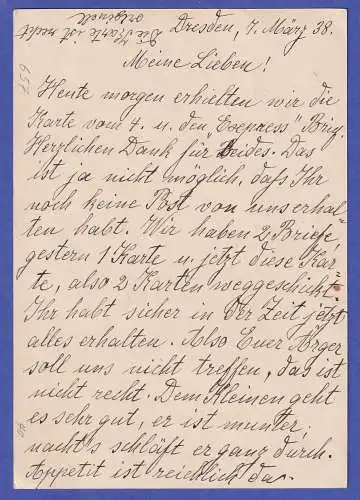 Dresden, 7. März 38.
Die Karte ist recht
originell
657
Meine Lieben!
Heute morgen erhielten wir die
Karte vom 4. u. den „Express" Brief.
Herzlichen Dank für Beides. Das
ist ja nicht möglich, daſs Ihr
noch keine Post von uns erhal-
ten habt. Wir haben 2 Briefe,
gestern 1 Karte u. jetzt diese Kar-
te, also 2 Karten weggeschickt.
Ihr habt sicher in der Zeit jetzt
alles erhalten. Also Euer Ärger
soll uns nicht treffen, das ist
nicht recht. Dem Kleinen geht
es sehr gut, er ist munter,
nacht's schläft er ganz durch.
Appetit ist reichlich da.